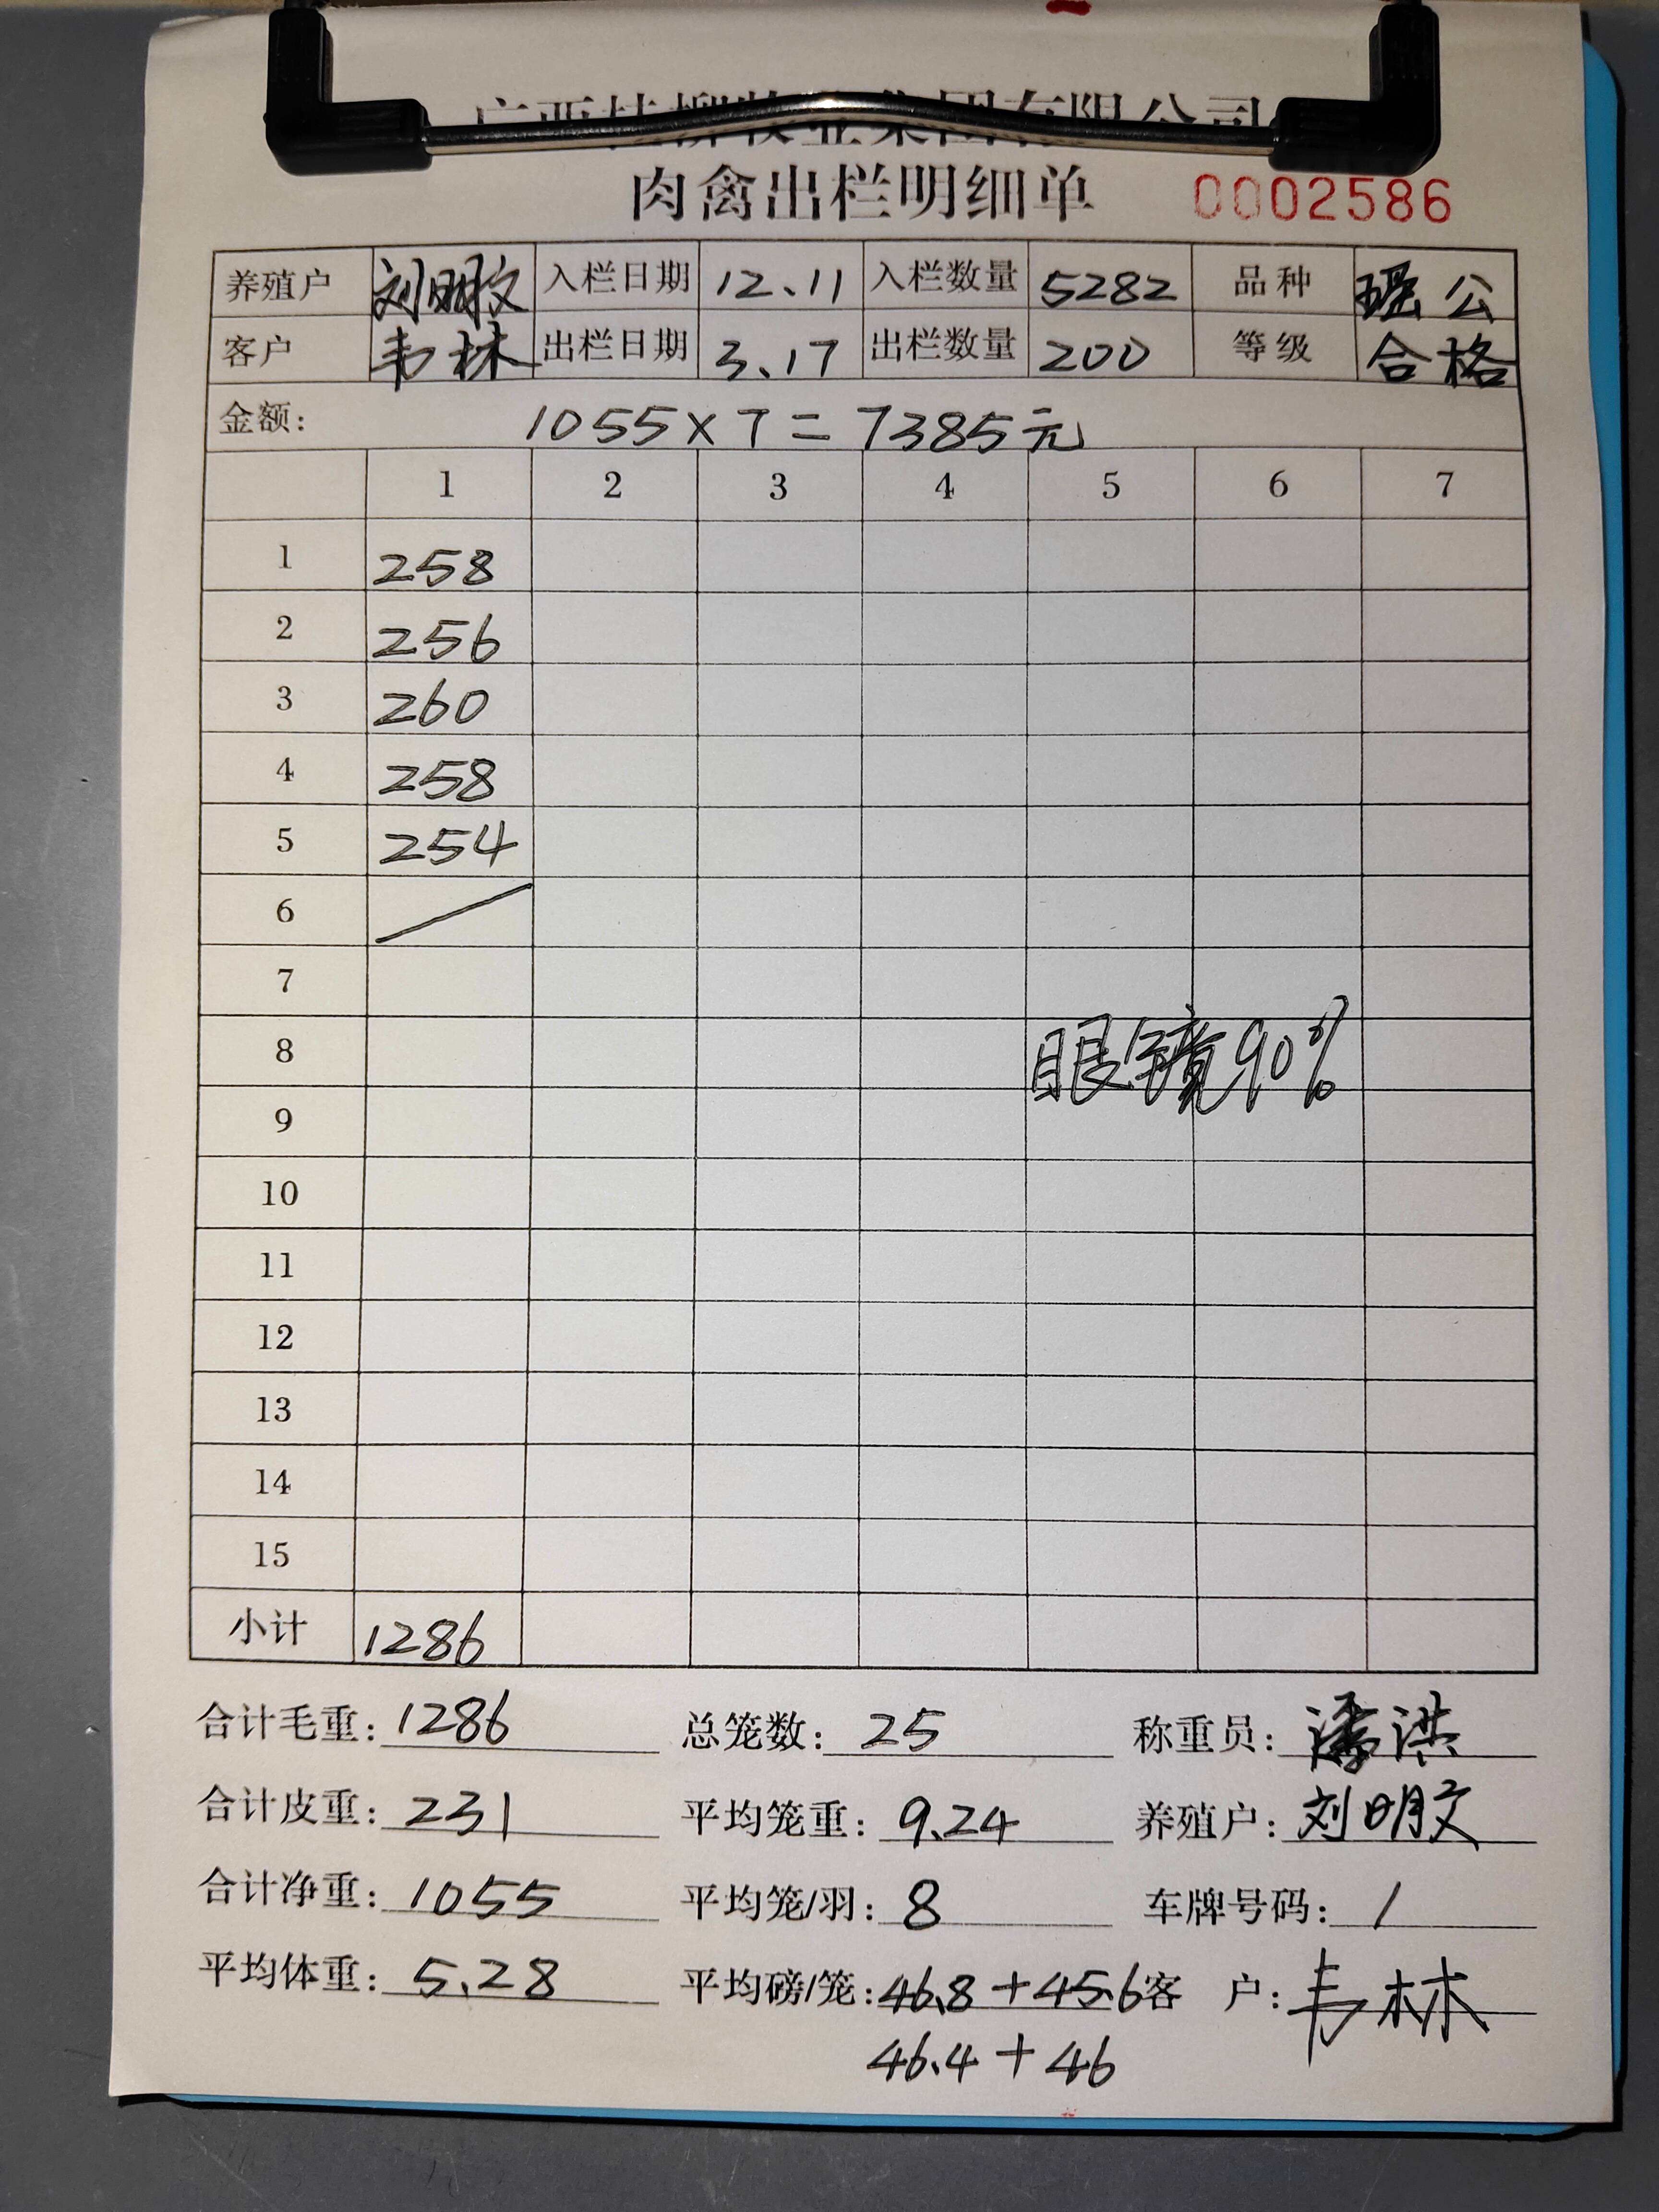 广西桂柳牧业集团有限公司
肉禽出栏明细单 0002586
养殖户 刘明文 入栏日期 12.11 入栏数量 5282 品种 瑶公
客户 韦林 出栏日期 3.17 出栏数量 200 等级 合格
金额: 1055×7=7385元
1 2 3 4 5 6 7
1 258
2 256
3 260
4 258
5 254
6 /
7
8 眼镜90%
9
10
11
12
13
14
15
小计 1286
合计毛重: 1286 总笼数: 25 称重员: 潘洪
合计皮重: 231 平均笼重: 9.24 养殖户: 刘明文
合计净重: 1055 平均笼/羽: 8 车牌号码: /
平均体重: 5.28 平均磅/笼: 46.8+45.6 客 户: 韦林
46.4+46